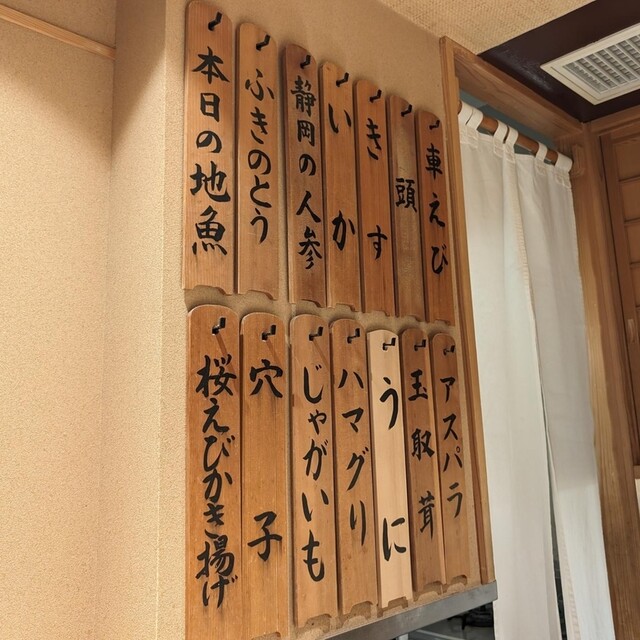 車えび
頭
きす
いか
静岡の人参
ふきのとう
本日の地魚
アスパラ
玉取茸
うに
ハマグリ
じゃがいも
穴子
桜えびかき揚げ